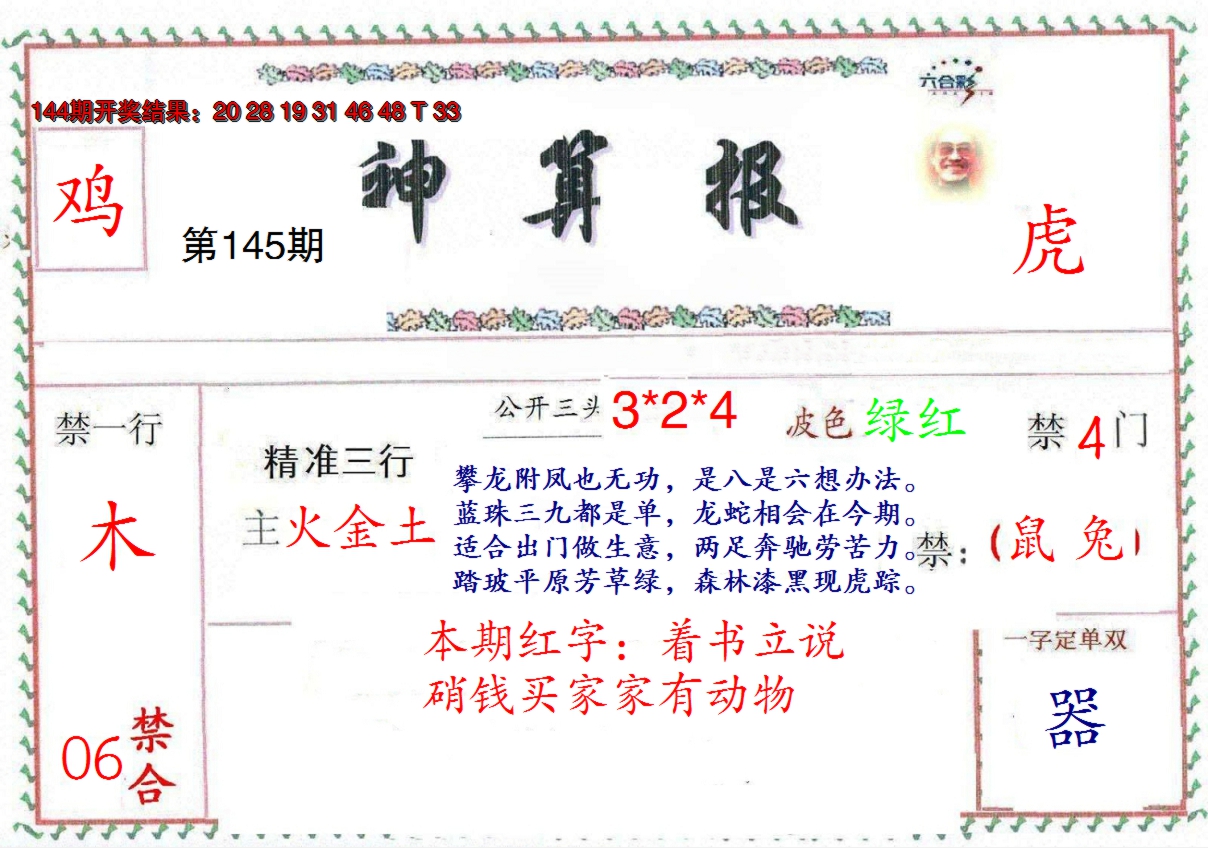 六合彩
144期开奖结果：20 28 19 31 46 48 T 33
鸡
神算报
第145期
虎
禁一行
木
06
禁合
精准三行
主火金土
公开三头
3*2*4
波色
绿红
禁4门
攀龙附凤也无功，是八是六想办法。
蓝珠三九都是单，龙蛇相会在今期。
适合出门做生意，两足奔驰劳苦力。
踏玻平原芳草绿，森林漆黑现虎踪。
禁：（鼠 兔）
本期红字：着书立说
硝钱买家家有动物
一字定单双
器